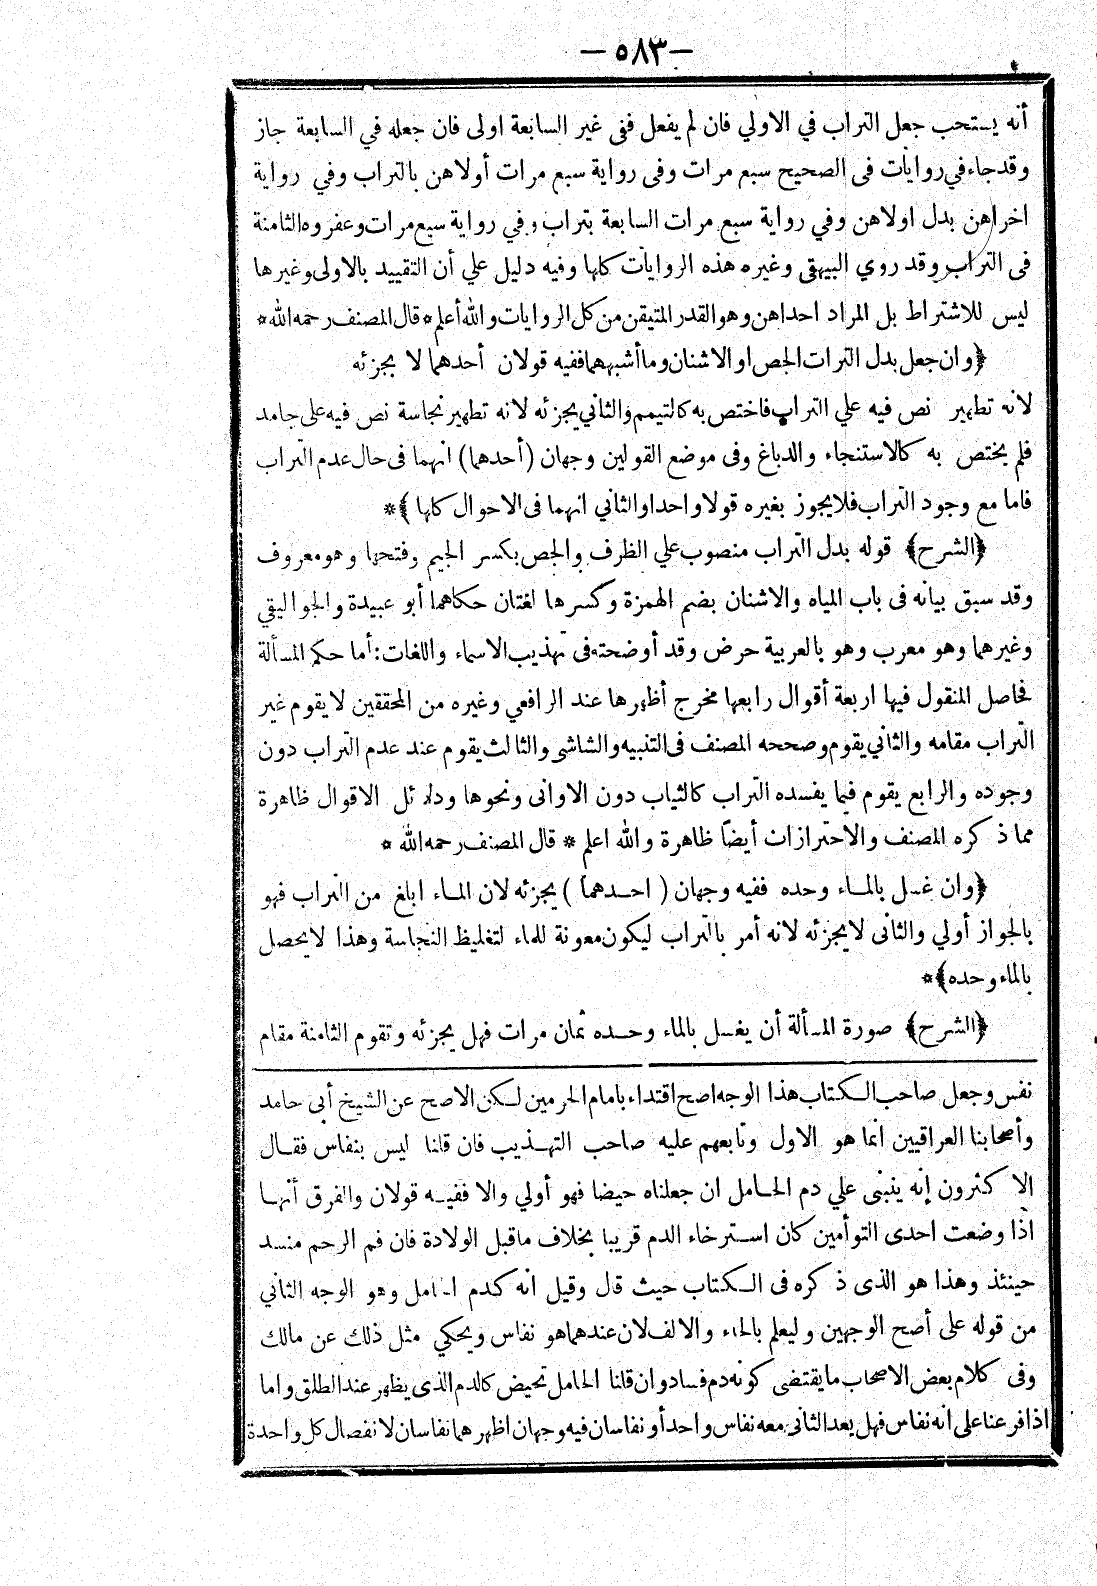 — ٥٨٣ —
أنه يستحب جعل التراب في الاولي فان لم يفعل ففى غير السابعة اولى فان جعله في السابعة جاز
وقدجاء في روايات فى الصحيح سبع مرات وفى رواية سبع مرات أولاهن بالتراب وفي رواية
اخراهن بدل اولاهن وفي رواية سبع مرات السابعة بتراب وفي رواية سبع مرات وعفروه الثامنة
فى التراب وقد روي البيهقى وغيره هذه الروايات كلها وفيه دليل علي أن التقييد بالاولى وغيرها
ليس للاشتراط بل المراد احداهن وهو القدر المتيقن من كل الروايات والله أعلم * قال المصنف رحمه الله *
﴿وان جعل بدل الترات الجص او الاشنان وما أشبههما ففيه قولان أحدهما لا يجزئه
لانه تطهير نص فيه علي التراب فاختص به كالتيمم والثاني يجزئه لانه تطهير نجاسة نص فيه على جامد
فلم يختص به كالاستنجاء والدباغ وفى موضع القولين وجهان (أحدهما) انهما فى حال عدم التراب
فاما مع وجود التراب فلا يجوز بغيره قولا واحدا والثاني انهما فى الاحوال كلها﴾*
﴿الشرح﴾ قوله بدل التراب منصوب علي الظرف والجص بكسر الجيم وفتحها وهو معروف
وقد سبق بيانه فى باب المياه والاشنان بضم الهمزة وكسرها لغتان حكاهما أبو عبيدة والجواليقي
وغيرهما وهو معرب وهو بالعربية حرض وقد أوضحته فى تهذيب الاسماء واللغات: أما حكم المسألة
فحاصل المنقول فيها اربعة أقوال رابعها مخرج أظهرها عند الرافعي وغيره من المحققين لا يقوم غير
التراب مقامه والثاني يقوم وصححه المصنف فى التنبيه والشاشى والثالث يقوم عند عدم التراب دون
وجوده والرابع يقوم فيما يفسده التراب كالثياب دون الاوانى ونحوها ودلائل الاقوال ظاهرة
مما ذكره المصنف والاحترازات أيضًا ظاهرة والله اعلم * قال المصنف رحمه الله *
﴿وان غسل بالماء وحده ففيه وجهان (احدهما) يجزئه لان الماء ابلغ من التراب فهو
بالجواز أولي والثانى لا يجزئه لانه أمر بالتراب ليكون معونة للماء لتغليظ النجاسة وهذا لا يحصل
بالماء وحده﴾*
﴿الشرح﴾ صورة المسألة أن يغسل بالماء وحده ثمان مرات فهل يجزئه وتقوم الثامنة مقام
نفس وجعل صاحب الكتاب هذا الوجه اصح اقتداء بامام الحرمين لكن الاصح عن الشيخ أبى حامد
وأصحابنا العراقيين انما هو الاول وتابعهم عليه صاحب التهذيب فان قلنا ليس بنفاس فقال
الاكثرون إنه ينبنى علي دم الحامل ان جعلناه حيضا فهو أولي والا ففيه قولان والفرق أنها
اذا وضعت احدى التوأمين كان استرخاء الدم قريبا بخلاف ما قبل الولادة فان فم الرحم منسد
حينئذ وهذا هو الذى ذكره فى الكتاب حيث قال وقيل انه كدم الحامل وهو الوجه الثاني
من قوله على أصح الوجهين وليعلم بالحاء والالف لان عندهما هو نفاس ويحكي مثل ذلك عن مالك
وفى كلام بعض الاصحاب ما يقتضى كونه دم فساد وان قلنا الحامل تحيض كالدم الذى يظهر عند الطلق واما
اذا فرعنا على انه نفاس فهل يعد الثانى معه نفاس واحد أو نفاسان فيه وجهان اظهرهما نفاسان لانفصال كل واحدة